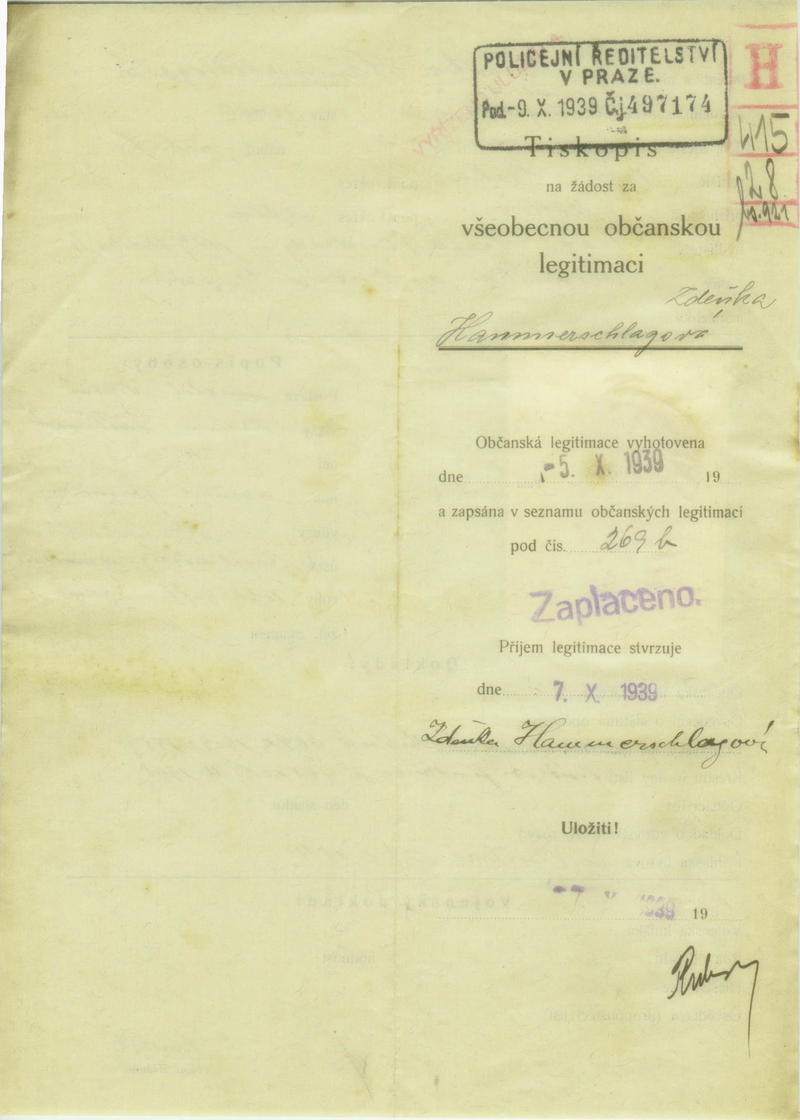 POLICEJNÍ ŘEDITELSTVÍ
V PRAZE.
Pod. -9. X. 1939 Č.j. 497174
H
415
28
Tiskopis
na žádost za
všeobecnou občanskou
legitimaci
Zdeňka
Hammerschlagová
Občanská legitimace vyhotovena
dne -5. X. 1939 19
a zapsána v seznamu občanských legitimací
pod čís. 269 b
Zaplaceno.
Příjem legitimace stvrzuje
dne 7. X 1939
Zdeňka Hammerschlagová
Uložiti!
19